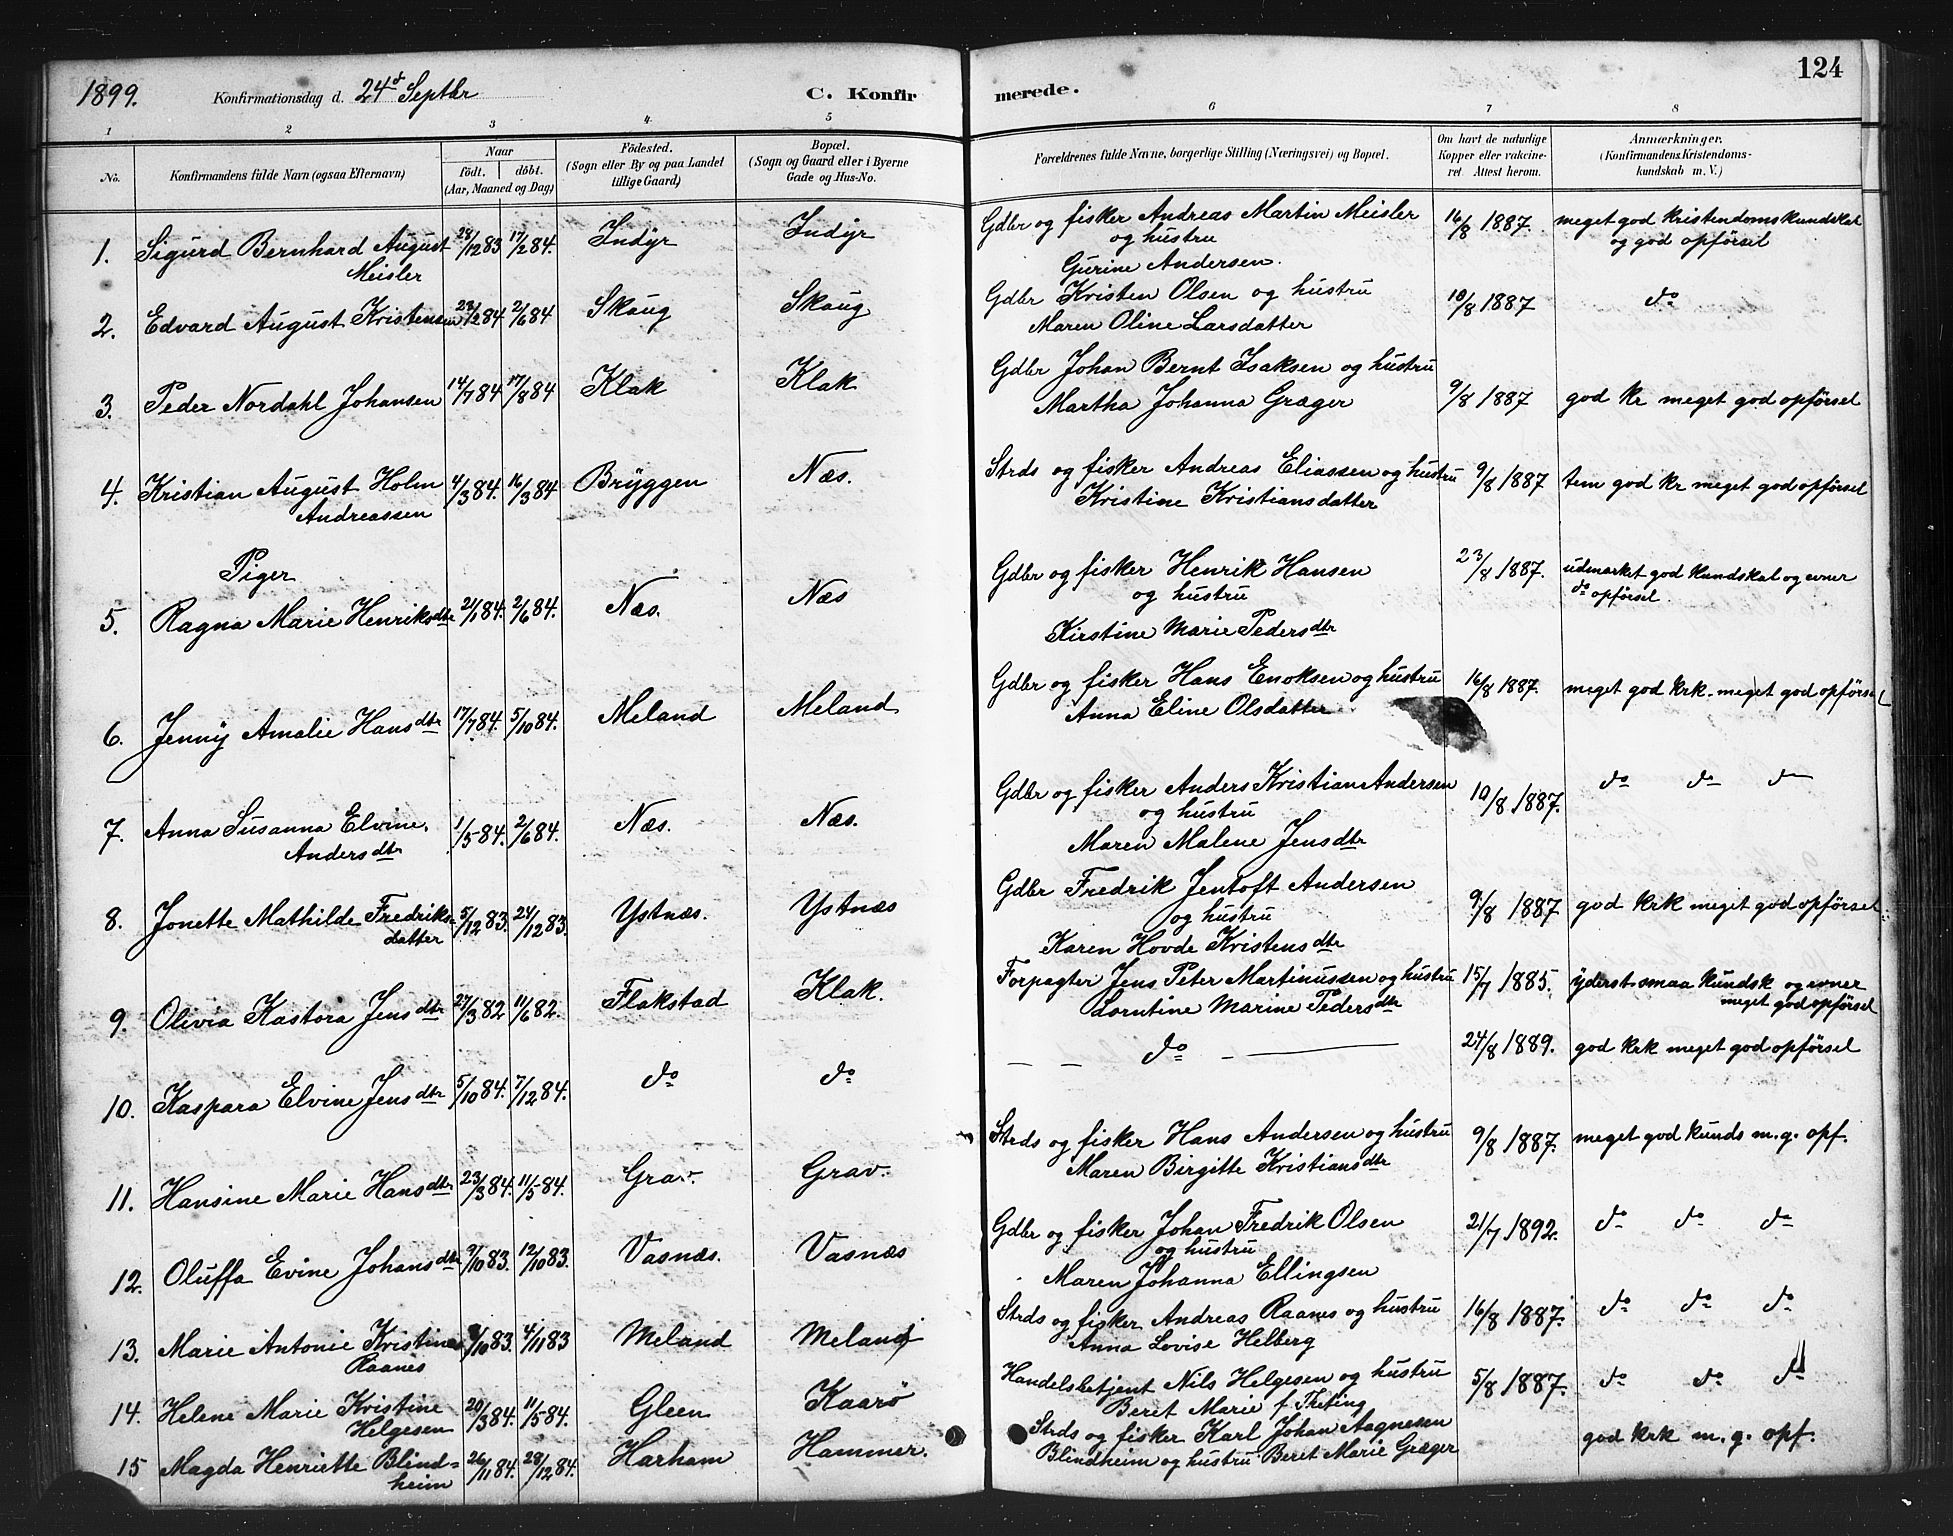 1899. Konfirmationsdag d. 24d Septbr C. Konfirmerede. 124
1 2 3 4. 5 6 7 8
No.
Konfirmandens fulde Navn (ogsaa Efternavn)
Naar
födt. döbt.
(Aar, Maaned og Dag)
Födested.
(Sogn eller By og paa Landet
tillige Gaard)
Bopæl.
(Sogn og Gaard eller i Byerne
Gade og Hus-No.
Forældrenes fulde Navne, borgerlige Stilling (Næringsvei) og Bopæl.
Om havt de naturlige
Kopper eller vakcine-
ret Attest herom.
Anmærkninger.
(Konfirmandens Kristendoms-
kundskab m. V.)
1. Sigurd Bernhard August 28/12 83 17/2 84. Indyr Indyr
Meisler
Gdbr og fisker Andreas Martin Meisler 16/8 1887. meget god kristendomskundskab
og hustru og god opförsel
Gurine Andersen.
2. Edvard August Kristensen 84 2/6 84 Skaug Skaug
Gdbr Kristen Olsen og hustru 10/8 1887 do
Maren Oline Larsdatter
3. Peder Nordahl Johansen 14/7 84 17/8 84 Klak Klak
Gdbr Johan Bernt Isaksen og hustru
Martha Johanna Græger 9/8 1887 god kr meget god opförsel
4. Kristian August Holm 4/3 84. 16/3 84 Bryggen Næs.
Andreassen
Strds og fisker Andreas Eliassen og hustru 9/8 1887 tem god kr meget god opförsel
Kristine Kristiansdatter
Piger
5. Ragna Marie Henriksdtr 21/1 84. 2/6 84. Næs. Næs
Gdbr og fisker Henrik Hansen 23/8 1887. udmærket god kundskab og evner
og hustru do opförsel.
Kirstine Marie Pedersdtr
6. Jenny Amalie Hansdtr 17/7 84. 5/10 84. Meland Meland
Gdbr og fisker Hans Enoksen og hustru 16/8 1887. meget god krk. meget god opförsel
Anna Eline Olsdatter
7. Anna Susanna Elvine. 1/5 84. 2/6 84. Næs. Næs.
Andersdtr
Gdbr og fisker Anders Kristian Andersen 10/8 1887. do do do
og hustru
Maren Malene Jensdtr
8. Jonette Mathilde Fredriks- 5/12 83. 24/12 83. Ystnæs. Ystnæs
datter
Gdbr Fredrik Jentoft Andersen 9/8 1887 god krk meget god opförsel
og hustru
Karen Hovde Kristensdtr
9. Olivia Kastora Jensdtr 27/3 82 11/6 82. Flakstad Klak.
Forpagter Jens Peter Martinussen og hustru 15/7 1885. yderst smaa kundsk og evner
Lorntine Marine Pedersdtr meget god opförsel
10. Kaspara Elvine Jensdtr 5/10 84. 7/12 84. do do
do 24/8 1889. god krk meget god opförsel
11. Hansine Marie Hansdtr 23/3 84. 11/5 84. Grav. Grav.
Strds og fisker Hans Andersen og hustru 9/8 1887. meget god kunds m. g. opf.
Maren Birgitte Kristiansdtr
12. Oluffa Evine Johansdtr 9/10 83. 12/10 83. Vasnæs. Vasnæs
Gdbr og fisker Johan Fredrik Olsen 21/7 1892. do do do
og hustru
Maren Johanna Ellingsen
13. Marie Antonie Kristine /10 83. 4/11 83 Meland Meland
Raanes
Strds og fisker Andreas Raanes og hustru 16/8 1887. do do do
Anna Lovise Helberg
14. Helene Marie Kristine 20/3 84. 11/5 84. Gleen Kaarö
Helgesen
Handelsbetjent Nils Helgesen og hustru 5/8 1887. do do do
Beret Marie f.
15 Magda Henriette Blind= 26/11 84. 28/12 84. Harham Hammer.
heim
Strds og fisker Karl Johan Aagnesen god krk m. g. opf.
Blindheim og hustru Beret Marie Græger